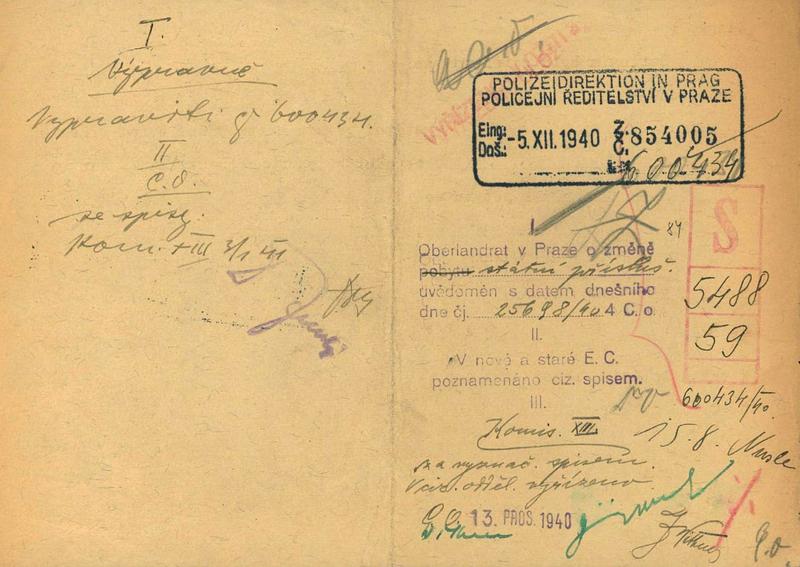 I.
Výpravně
Vypraviti č 600434.
II
Č. O.
se spisy.
Kom. XIII 3/1 41
POLIZEIDIREKTION IN PRAG
POLICEJNÍ ŘEDITELSTVÍ V PRAZE
Eing: Doš.: -5. XII. 1940 Z. Č. 854005
600434
I
84
S
Oberlandrat v Praze o změně
pobytu státní přísluš.
uvědoměn s datem dnešního
dne čj. 25698/40 4 C. o.
5488
59
II.
V nové a staré E. C.
poznamenáno ciz. spisem.
III.
600434/40
Komis. XIII.
15.8. Nusle
za vyznač. spisem.
V ciz. odděl. vyřízeno
13. PROS. 1940